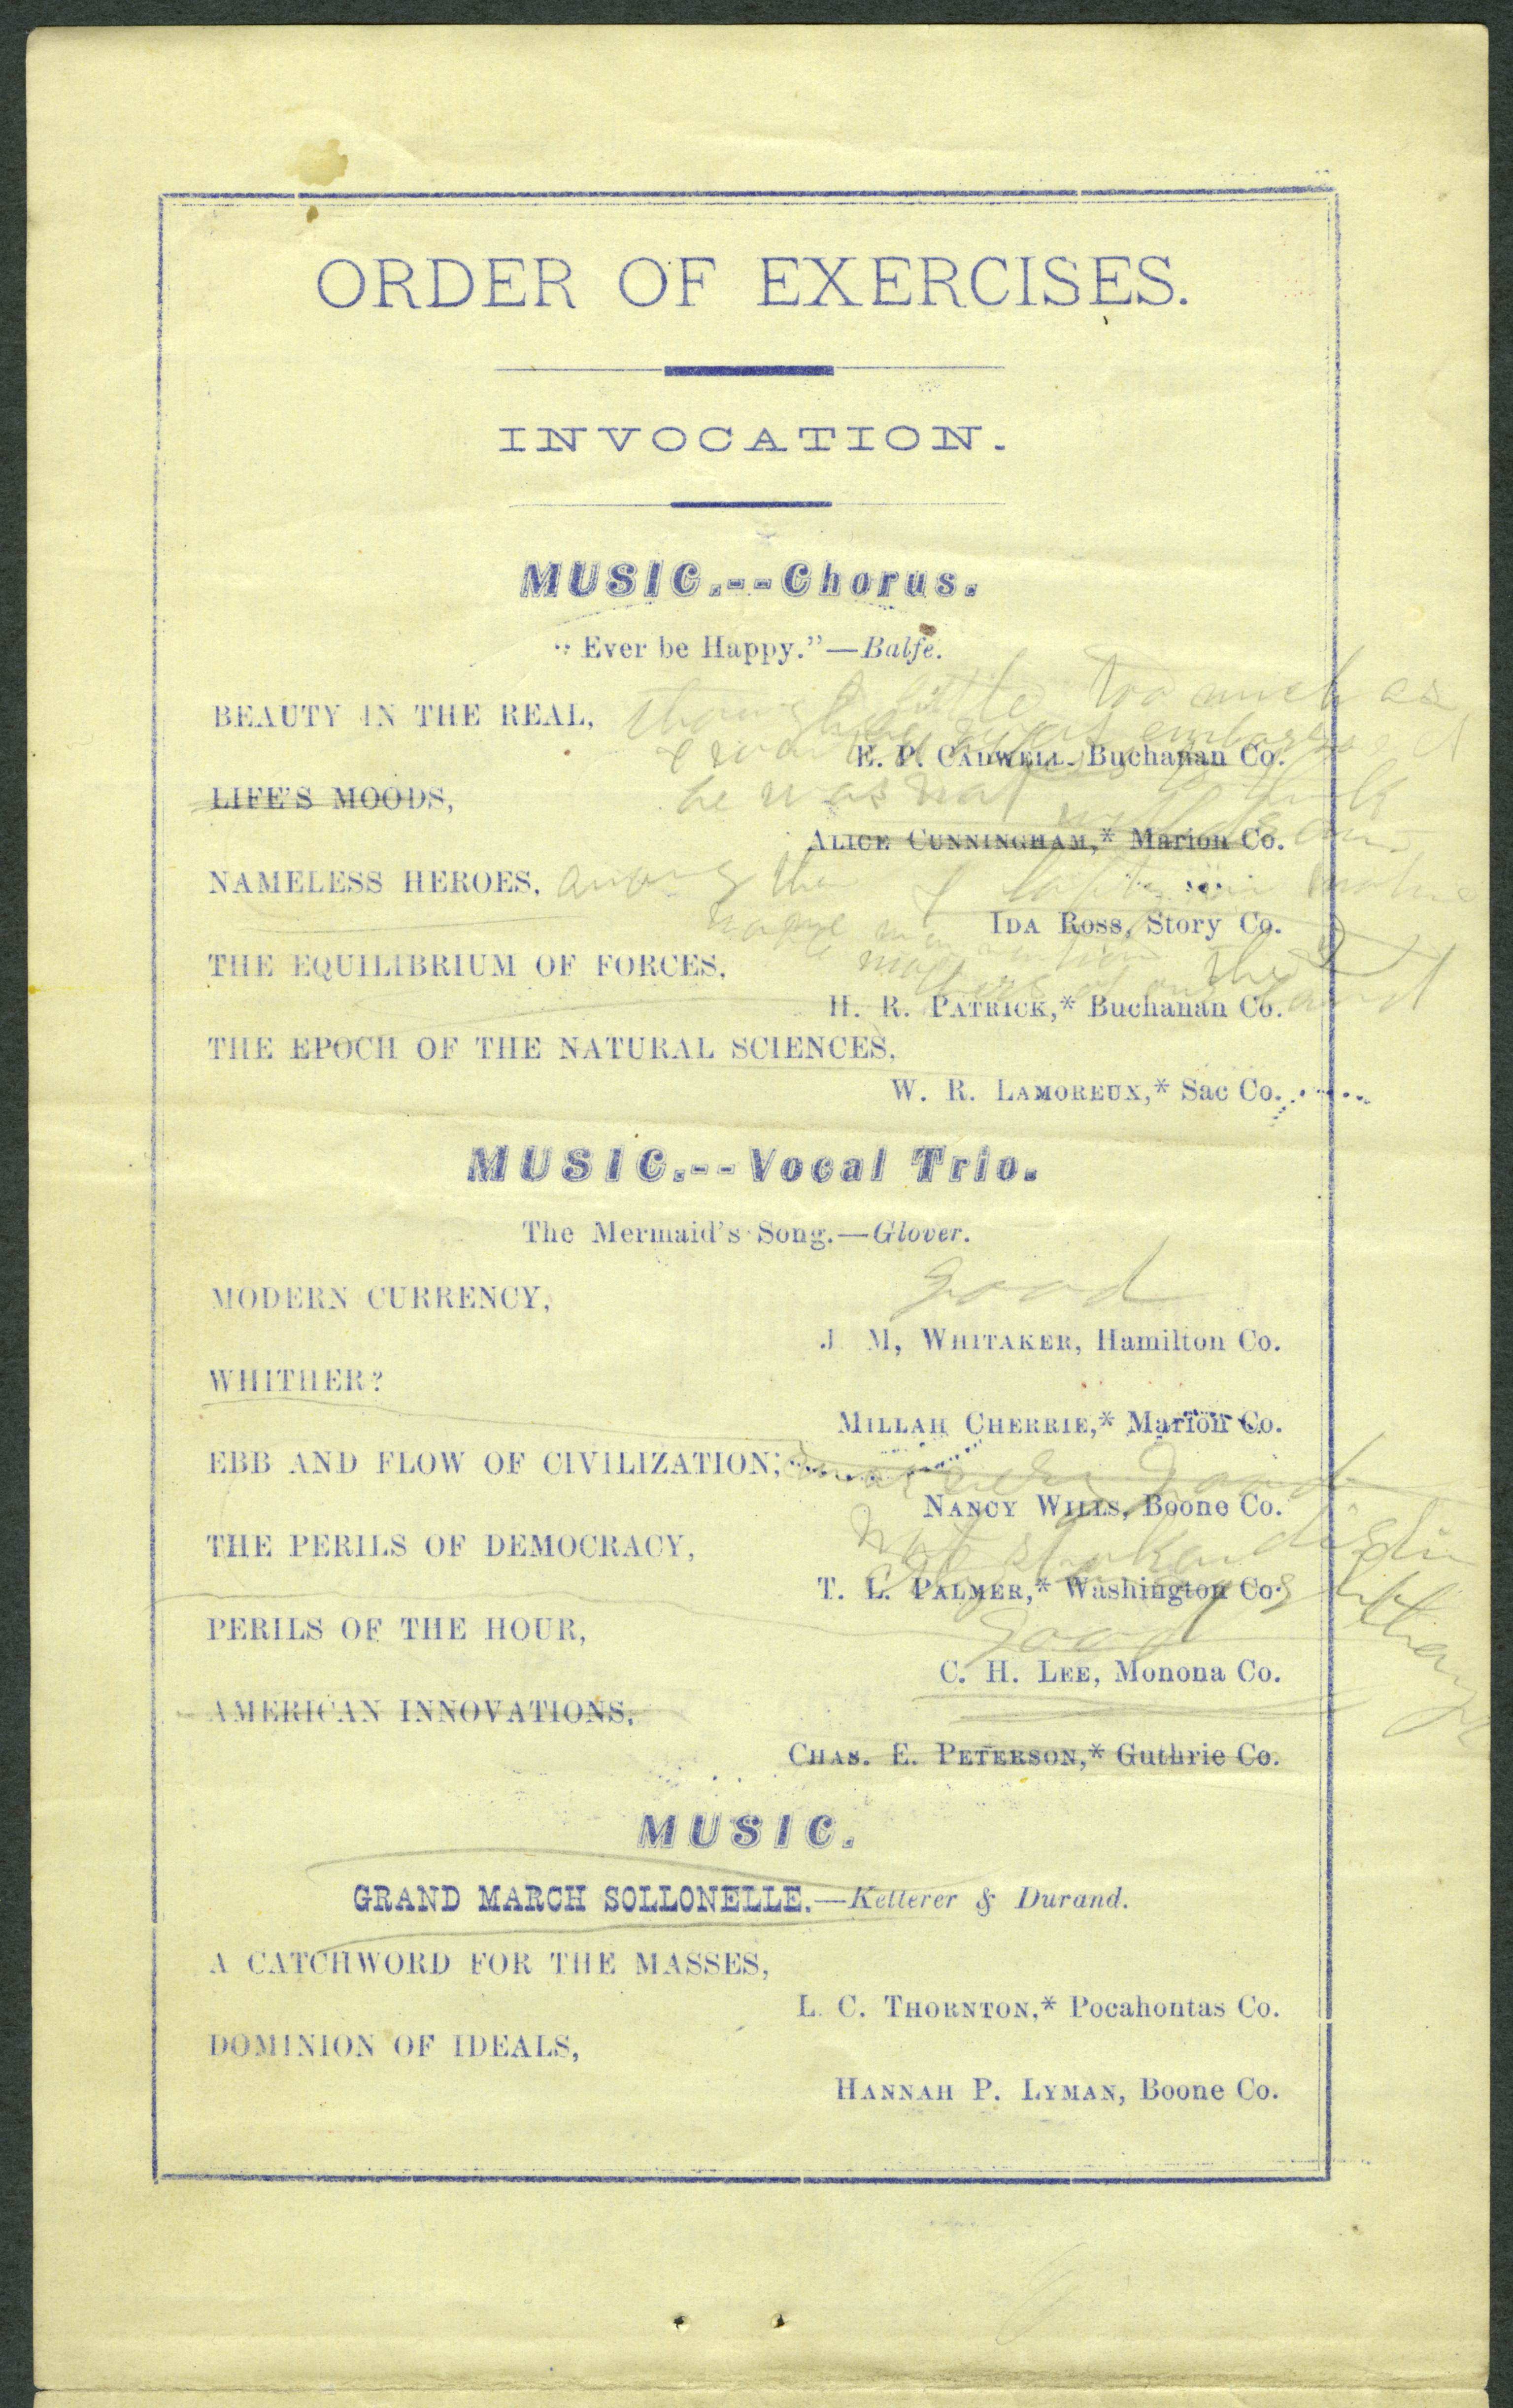 ORDER OF EXERCISES.
INVOCATION.
MUSIC.--Chorus.
"Ever be Happy."—Balfe.
BEAUTY IN THE REAL,
little too much as
E. P. CADWELL. Buchanan Co.
he was not
LIFE'S MOODS,
ALICE CUNNINGHAM,* Marion Co.
NAMELESS HEROES, among the
IDA ROSS, Story Co.
THE EQUILIBRIUM OF FORCES,
H. R. PATRICK,* Buchanan Co.
THE EPOCH OF THE NATURAL SCIENCES,
W. R. LAMOREUX,* Sac Co.
MUSIC.--Vocal Trio.
The Mermaid's Song.—Glover.
good
MODERN CURRENCY,
J. M, WHITAKER, Hamilton Co.
WHITHER?
MILLAH CHERRIE,* Marion Co.
EBB AND FLOW OF CIVILIZATION, good
NANCY WILLS, Boone Co.
THE PERILS OF DEMOCRACY,
T. L. PALMER,* Washington Co.
good
PERILS OF THE HOUR,
C. H. LEE, Monona Co.
AMERICAN INNOVATIONS,
CHAS. E. PETERSON,* Guthrie Co.
MUSIC.
GRAND MARCH SOLLONELLE.—Ketterer & Durand.
A CATCHWORD FOR THE MASSES,
L. C. THORNTON,* Pocahontas Co.
DOMINION OF IDEALS,
HANNAH P. LYMAN, Boone Co.